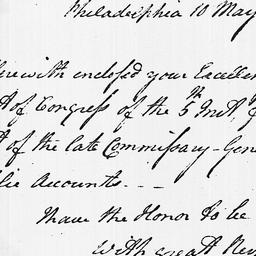 Philadelphia 10 May
herewith enclosed your Excellen
t of Congress of the 5th Inst,
t of the late Commissary-Gen
lic Accounts. --
have the Honor to be
with great